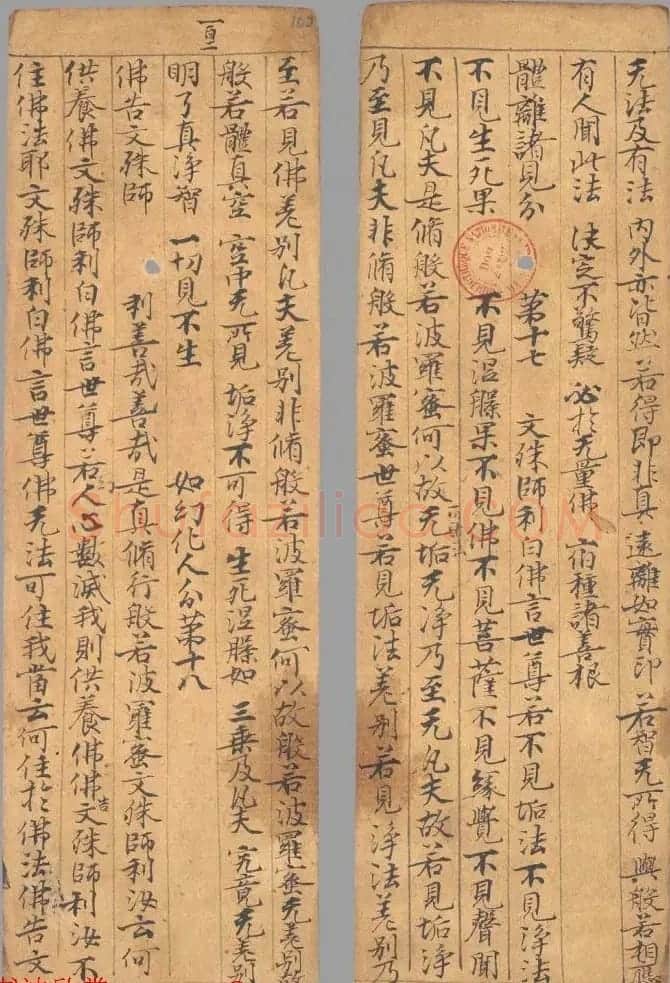 无法及有法 内外亦皆然 若得即非真 遠離如實印 若智无所得 與般若相應
有人聞此法 决定不驚疑 必於无量佛 宿種諸善根
體離諸見分 第十七 文殊師利白佛言世尊若不見垢法不見淨法
不見生死果 不見涅槃果不見佛不見菩薩不見緣覺不見聲聞
不見凡夫是脩般若波羅蜜何以故无垢无淨乃至无凡夫故若見垢淨
乃至見凡夫非脩般若波羅蜜世尊若見垢法差別若見淨法差別乃
至若見佛差別凡夫差別非脩般若波羅蜜何以故般若波羅蜜无差別故
般若體真空 空中无所見 垢淨不可得 生死涅槃如 三乘及凡夫 究竟无差別
明了真淨智 一切見不生 如幻化人分第十八
佛告文殊師 利善哉善哉是真脩行般若波羅蜜文殊師利汝云何
供養佛文殊師利白佛言世尊若人心數滅我則供養佛佛告文殊師利汝不
住佛法耶文殊師利白佛言世尊佛无法可住我當云何住於佛法佛告文
shufaziliao.com